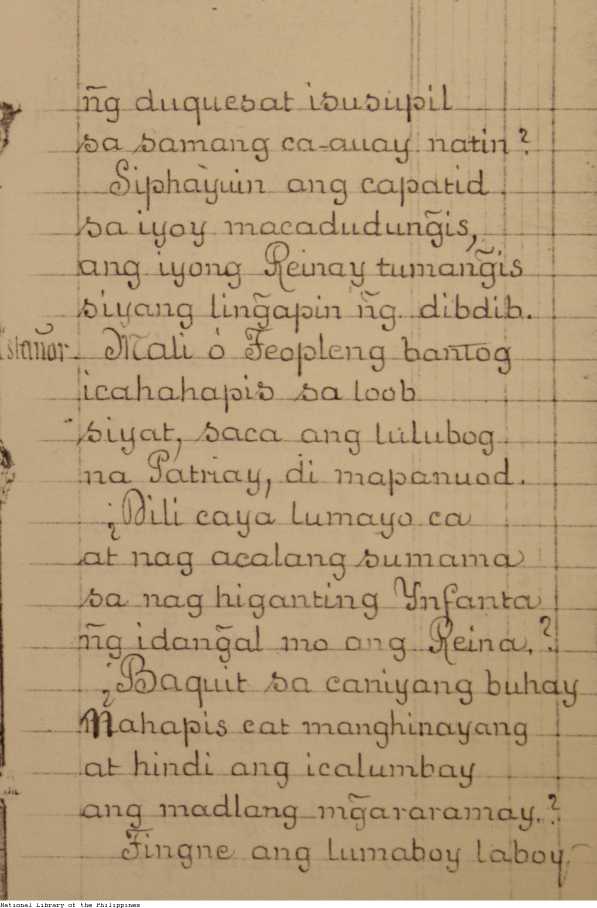 n̄g duquesat isusupil
sa samang ca-auay natin?
Siphayuin ang capatid
sa iyoy macadudung̃is,
ang iyong Reinay tumang̃is
siyang ling̃apin n̄g dibdib.
Mali ó Teopleng bantog
icahahapis sa loob
siyat, saca ang lulubog
na Patriay, di mapanuod.
¿Dili caya lumayo ca
at nag acalang sumama
sa nag higanting Ynfanta
n̄g idang̃al mo ang Reina,?
¿Baquit sa caniyang buhay
Mahapis cat manghinayang
at hindi ang icalumbay
ang madlang mg̃araramay.?
Tingne ang lumaboy laboy
National Library of the Philippines